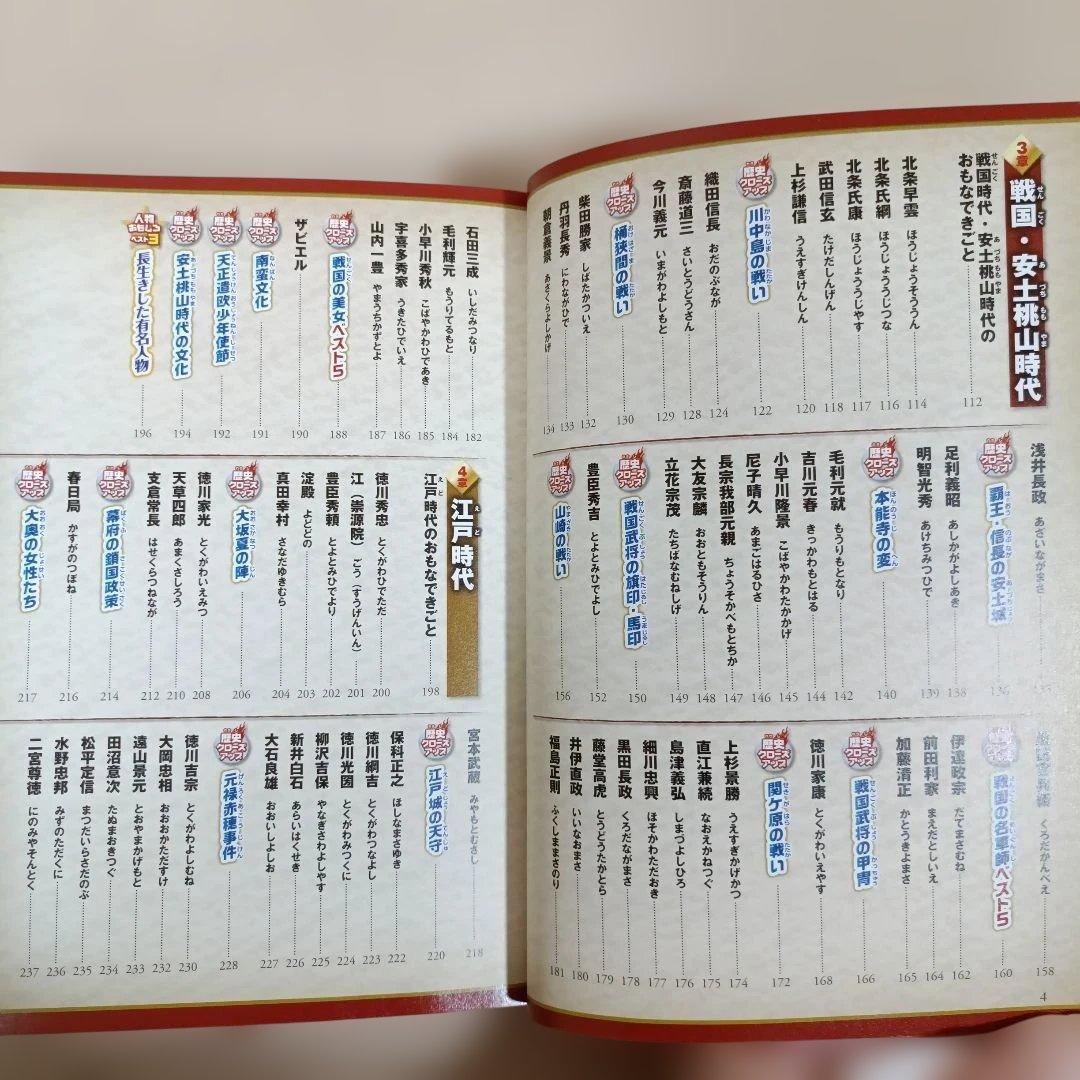 3章 戦国・安土桃山時代
戦国時代・安土桃山時代の
おもなできごと 112
北条早雲 ほうじょうそううん 114
北条氏綱 ほうじょううじつな 116
北条氏康 ほうじょううじやす 117
武田信玄 たけだしんげん 118
上杉謙信 うえすぎけんしん 120
歴史クローズアップ 川中島の戦い 122
織田信長 おだのぶなが 124
斎藤道三 さいとうどうさん 128
今川義元 いまがわよしもと 129
歴史クローズアップ 桶狭間の戦い 130
柴田勝家 しばたかついえ 132
丹羽長秀 にわながひで 133
朝倉義景 あさくらよしかげ 134
浅井長政 あざいながまさ
歴史クローズアップ 覇王・信長の安土城 136
足利義昭 あしかがよしあき 138
明智光秀 あけちみつひで 139
歴史クローズアップ 本能寺の変 140
毛利元就 もうりもとなり 142
吉川元春 きっかわもとはる 144
小早川隆景 こばやかわたかかげ 145
尼子晴久 あまごはるひさ 146
長宗我部元親 ちょうそかべもとちか 147
大友宗麟 おおともそうりん 148
立花宗茂 たちばなむねしげ 149
歴史クローズアップ 戦国武将の旗印・馬印 150
豊臣秀吉 とよとみひでよし 152
歴史クローズアップ 山崎の戦い 156
くろだかんべえ 158
歴史クローズアップ 戦国の名軍師ベスト5 160
伊達政宗 だてまさむね 162
前田利家 まえだとしいえ 164
加藤清正 かとうきよまさ 165
歴史クローズアップ 戦国武将の甲冑 166
徳川家康 とくがわいえやす 168
歴史クローズアップ 関ケ原の戦い 172
上杉景勝 うえすぎかげかつ 174
直江兼続 なおえかねつぐ 175
島津義弘 しまづよしひろ 176
細川忠興 ほそかわただおき 177
黒田長政 くろだながまさ 178
藤堂高虎 とうどうたかとら 179
井伊直政 いいなおまさ 180
福島正則 ふくしままさのり 181
4
石田三成 いしだみつなり 182
毛利輝元 もうりてるもと 184
小早川秀秋 こばやかわひであき 185
宇喜多秀家 うきたひでいえ 186
山内一豊 やまうちかずとよ 187
歴史クローズアップ 戦国の美女ベスト5 188
ザビエル 190
歴史クローズアップ 南蛮文化 191
歴史クローズアップ 天正遣欧少年使節 192
歴史クローズアップ 安土桃山時代の文化 194
人物おもしろベスト3 長生きした有名人物 196
4章 江戸時代
江戸時代のおもなできごと 198
徳川秀忠 とくがわひでただ 200
江（崇源院） ごう（すうげんいん） 201
豊臣秀頼 とよとみひでより 202
淀殿 よどどの 203
真田幸村 さなだゆきむら 204
歴史クローズアップ 大坂夏の陣 206
徳川家光 とくがわいえみつ 208
天草四郎 あまくさしろう 210
支倉常長 はせくらつねなが 212
歴史クローズアップ 幕府の鎖国政策 214
春日局 かすがのつぼね 216
歴史クローズアップ 大奥の女性たち 217
宮本武蔵 みやもとむさし 218
歴史クローズアップ 江戸城の天守 220
保科正之 ほしなまさゆき 222
徳川綱吉 とくがわつなよし 223
徳川光圀 とくがわみつくに 224
柳沢吉保 やなぎさわよしやす 225
新井白石 あらいはくせき 226
大石良雄 おおいしよしお 227
歴史クローズアップ 元禄赤穂事件 228
徳川吉宗 とくがわよしむね 230
大岡忠相 おおおかただすけ 232
遠山景元 とおやまかげもと 233
田沼意次 たぬまおきつぐ 234
松平定信 まつだいらさだのぶ 235
水野忠邦 みずのただくに 236
二宮尊徳 にのみやそんとく 237